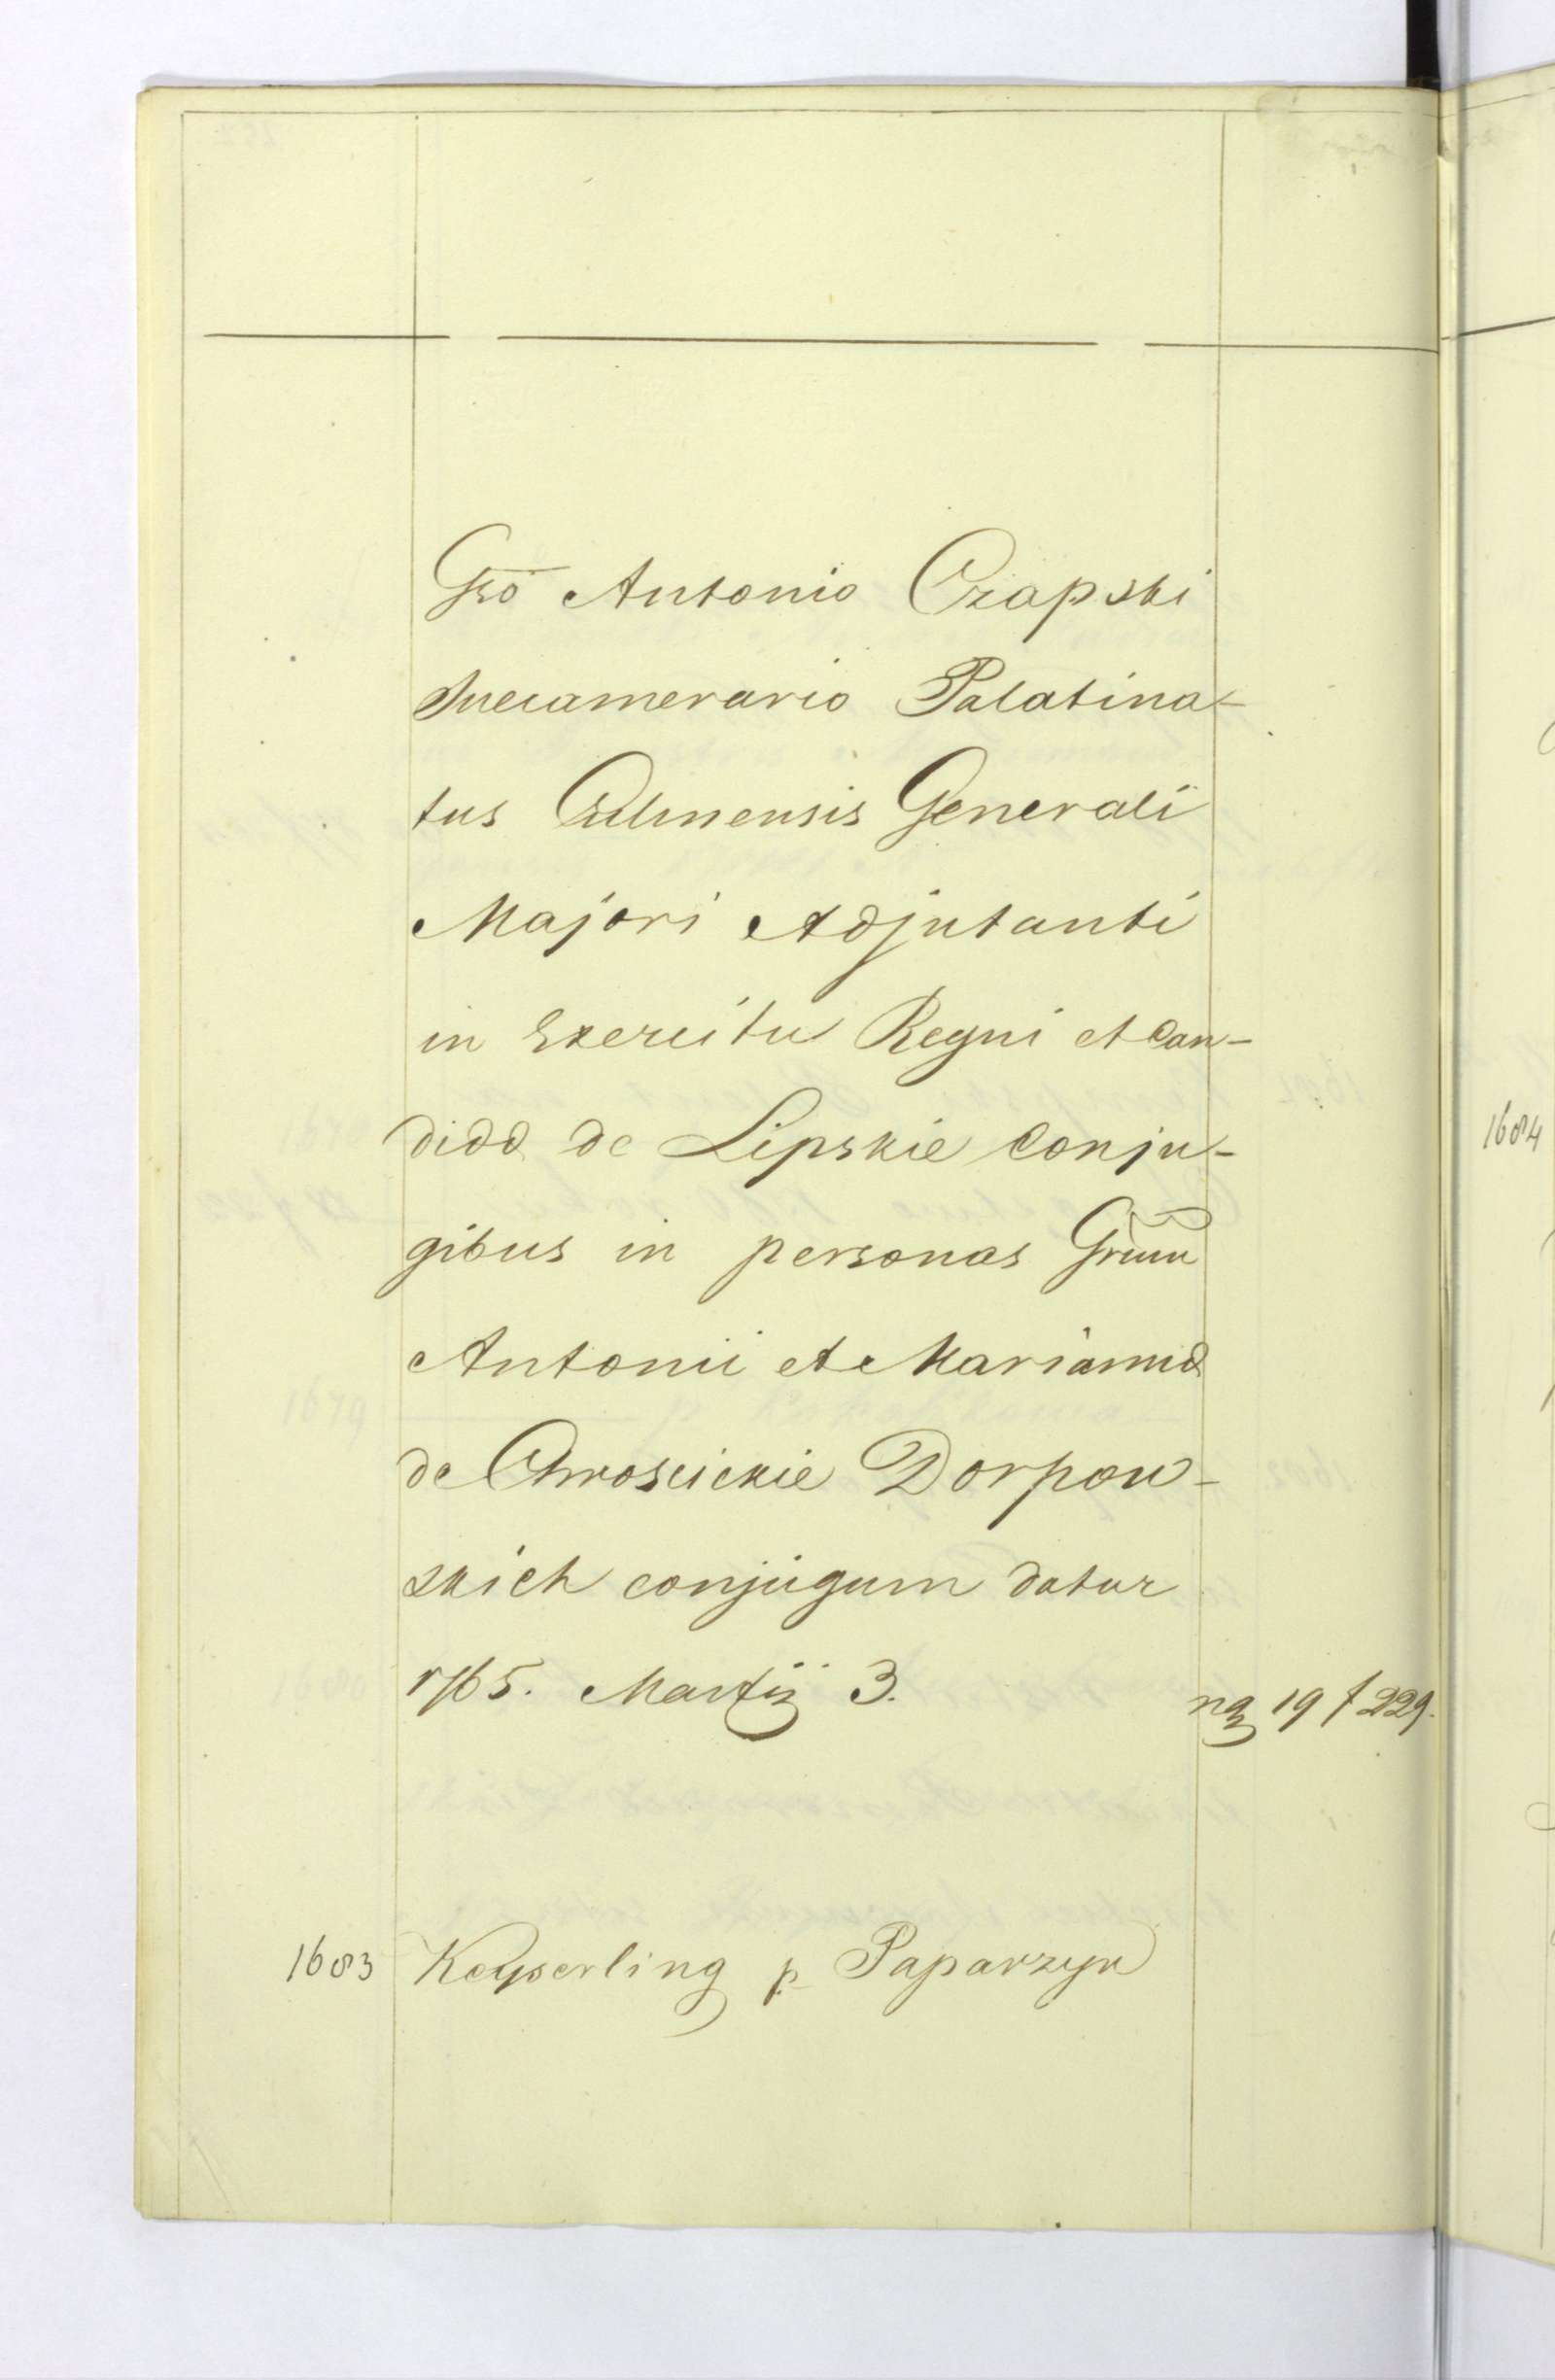 Gso Antonio Czapski
Succamerario Palatina-
tus Culmensis Generali
Majori Adjutanti
in Exercitu Regni et Can-
dida de Lipskie conju-
gibus in personas Grum
Antonii et Marianna
de Chroscickie Dorpow-
skich conjugum datur
1765. Martij 3.
19 f 229.
1683 Keyserling p Paparzyn
1684